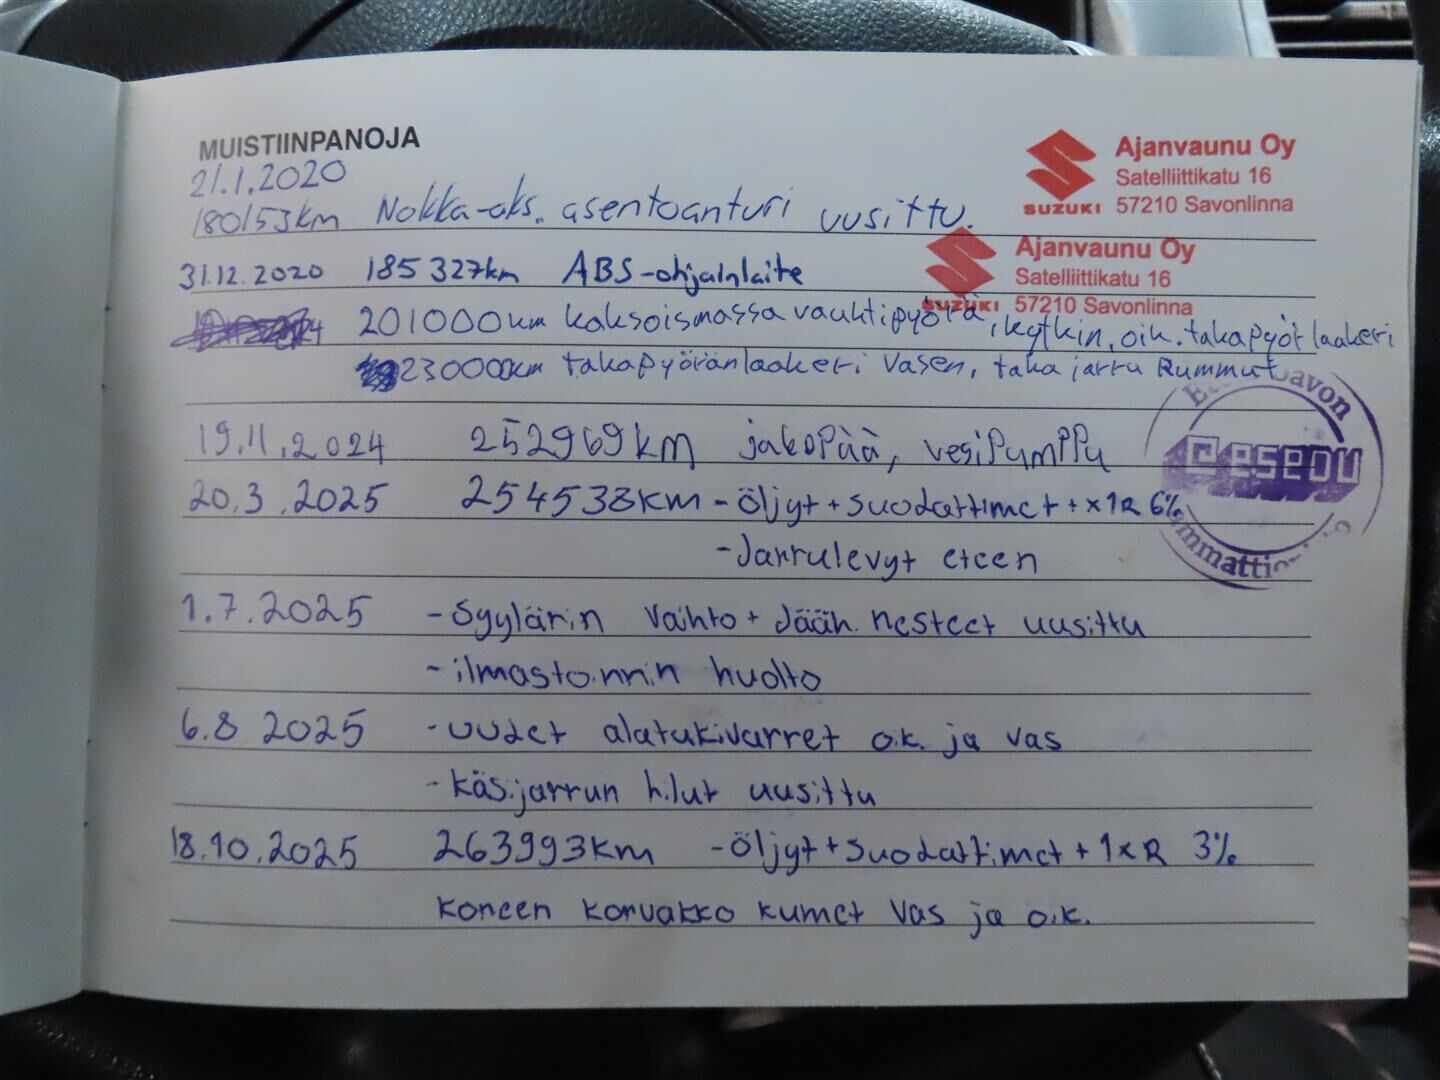 MUISTIINPANOJA
21.1.2020
180153km Nokka-aks. asentoanturi uusittu.
SUZUKI
Ajanvaunu Oy
Satelliittikatu 16
57210 Savonlinna
31.12.2020 185327km ABS-ohjainlaite
SUZUKI
Ajanvaunu Oy
Satelliittikatu 16
57210 Savonlinna
201000km kaksoismassa vauhtipyörä, kytkin, oik. takapyör laakeri
230000km takapyöränlaakeri vasen, taka jarru Rummut
19.11.2024 252969km jakopää, vesipumppu
Savon
esedu
ammattio
20.3.2025 254538km - öljyt + suodattimet + x1R 6%
- Jarrulevyt eteen
1.7.2025 - Syylärin vaihto + Jääh. nesteet uusittu
- ilmastoinnin huolto
6.8 2025 - uudet alatukivarret oik. ja vas
- käsijarrun hilut uusittu
18.10.2025 263993km - öljyt + suodattimet + 1xR 3%
koneen korvakko kumet vas ja oik.